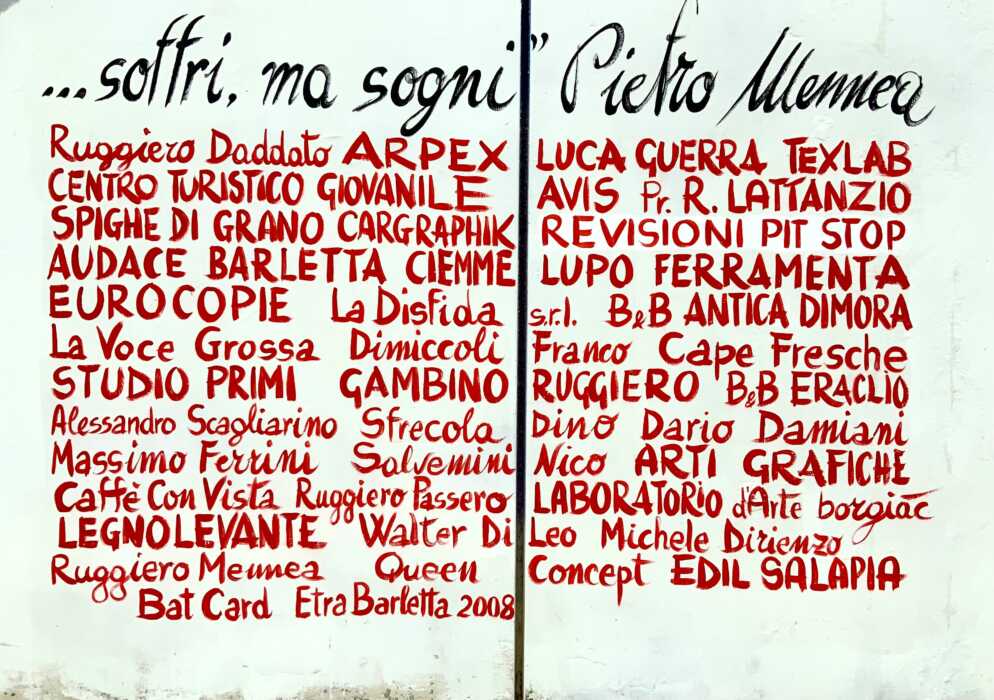 ...soffri, ma sogni" Pietro Mennea
Ruggiero Daddato ARPEX LUCA GUERRA TEXLAB
CENTRO TURISTICO GIOVANILE AVIS Pr. R. LATTANZIO
SPIGHE DI GRANO CARGRAPHIK REVISIONI PIT STOP
AUDACE BARLETTA CIEMME LUPO FERRAMENTA
EUROCOPIE La Disfida s.r.l. B&B ANTICA DIMORA
La Voce Grossa Dimiccoli Franco Cape Fresche
STUDIO PRIMI GAMBINO RUGGIERO B&B ERACLIO
Alessandro Scagliarino Sfrecola Dino Dario Damiani
Massimo Ferrini Salvemini Nico ARTI GRAFICHE
Caffè Con Vista Ruggiero Passero LABORATORIO d'Arte borgiac
LEGNOLEVANTE Walter Di Leo Michele Dirienzo
Ruggiero Mennea Queen Concept EDIL SALAPIA
Bat Card Etra Barletta 2008